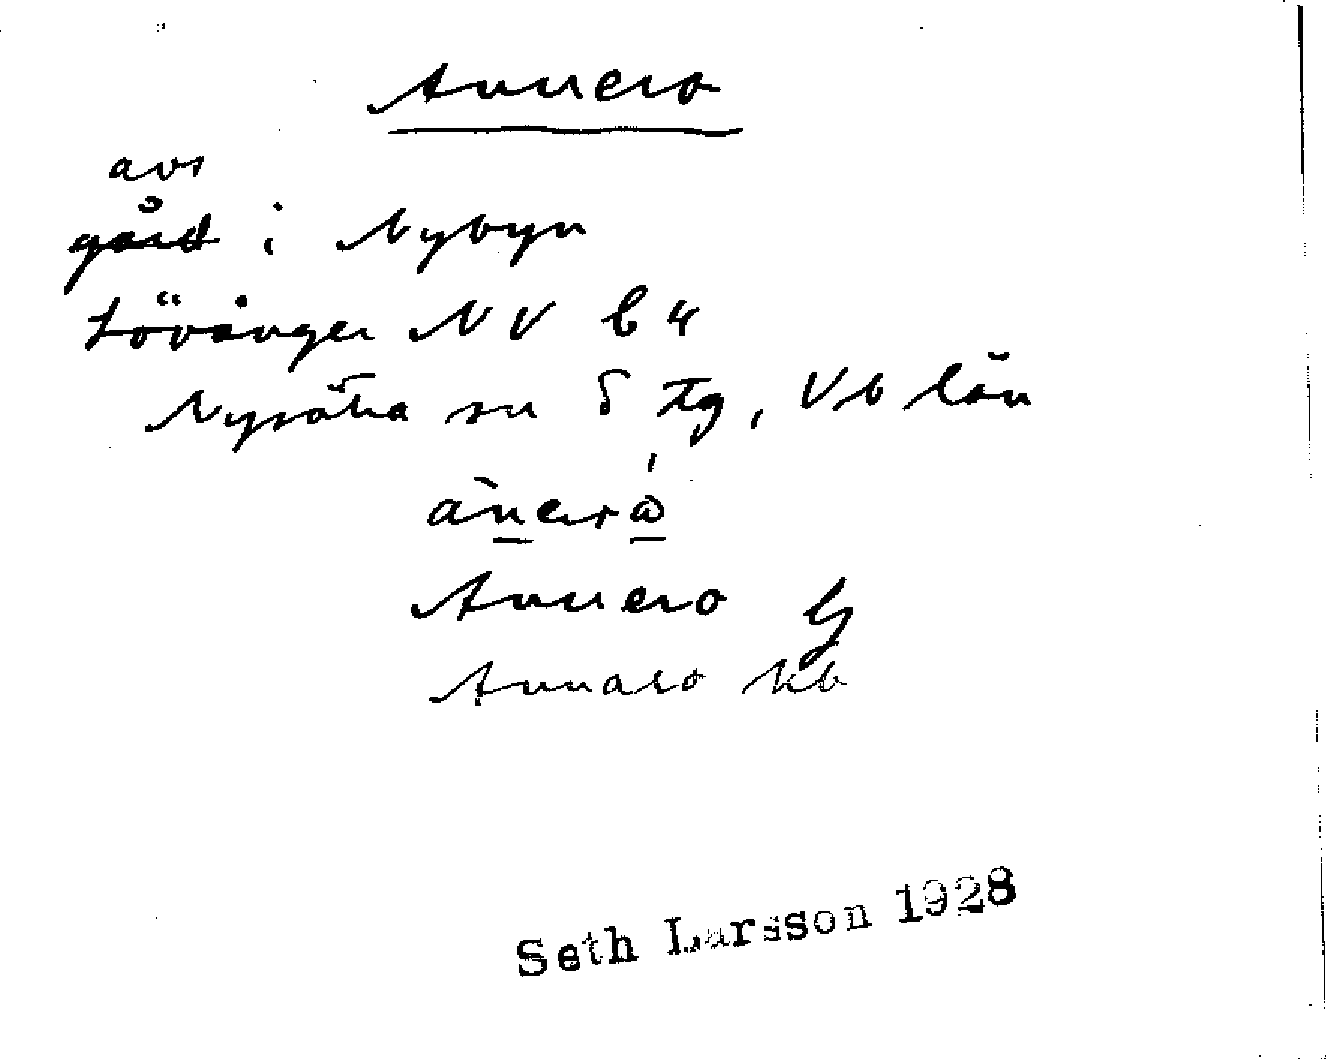 Annero
avs
gård i Nybyn
Lövånger NV bl 4
Nysätra sn S Tg, Vb län
Annero G
Annaro kb
Seth Larsson 1928